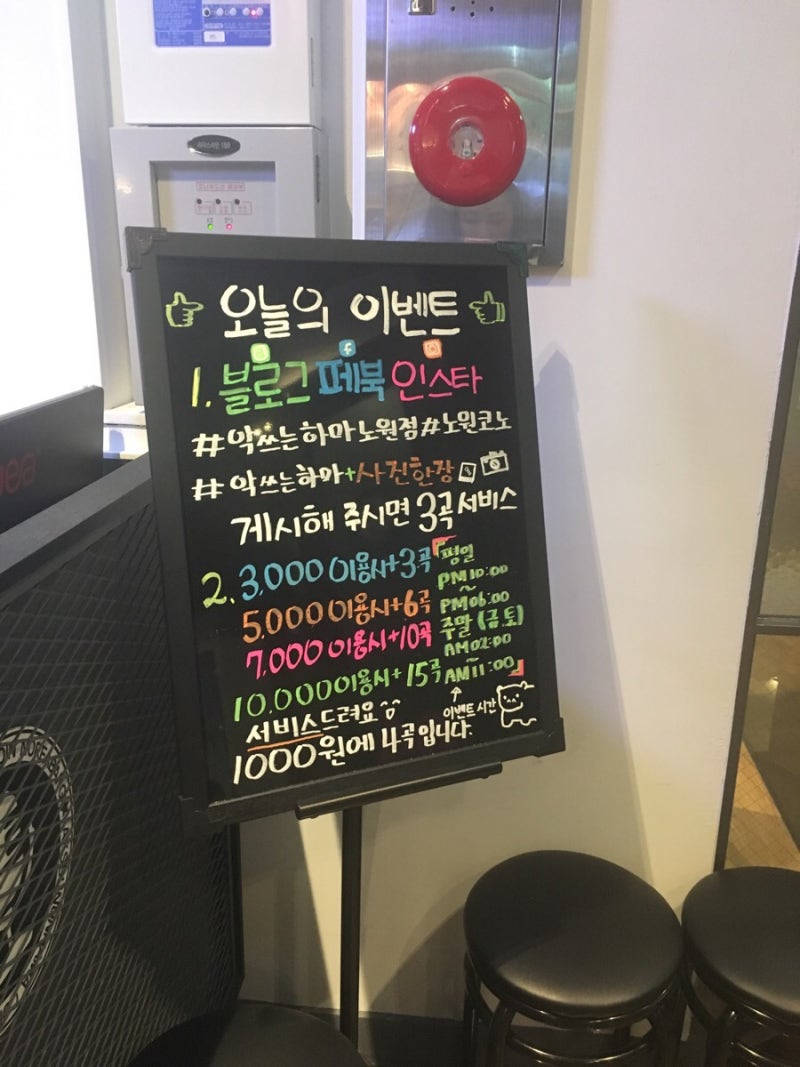 오늘의 이벤트
1. 블로그 페북 인스타
#악쓰는하마노원점#노원코노
#악쓰는하마+사진한장
게시해 주시면 3곡 서비스
2. 3,000이용시+3곡
5,000이용시+6곡
7,000이용시+10곡
10,000이용시+15곡
평일
PM10:00
~
PM06:00
주말(금.토)
AM02:00
~
AM11:00
↑
이벤트시간
서비스드려요^^
1000원에 4곡입니다.